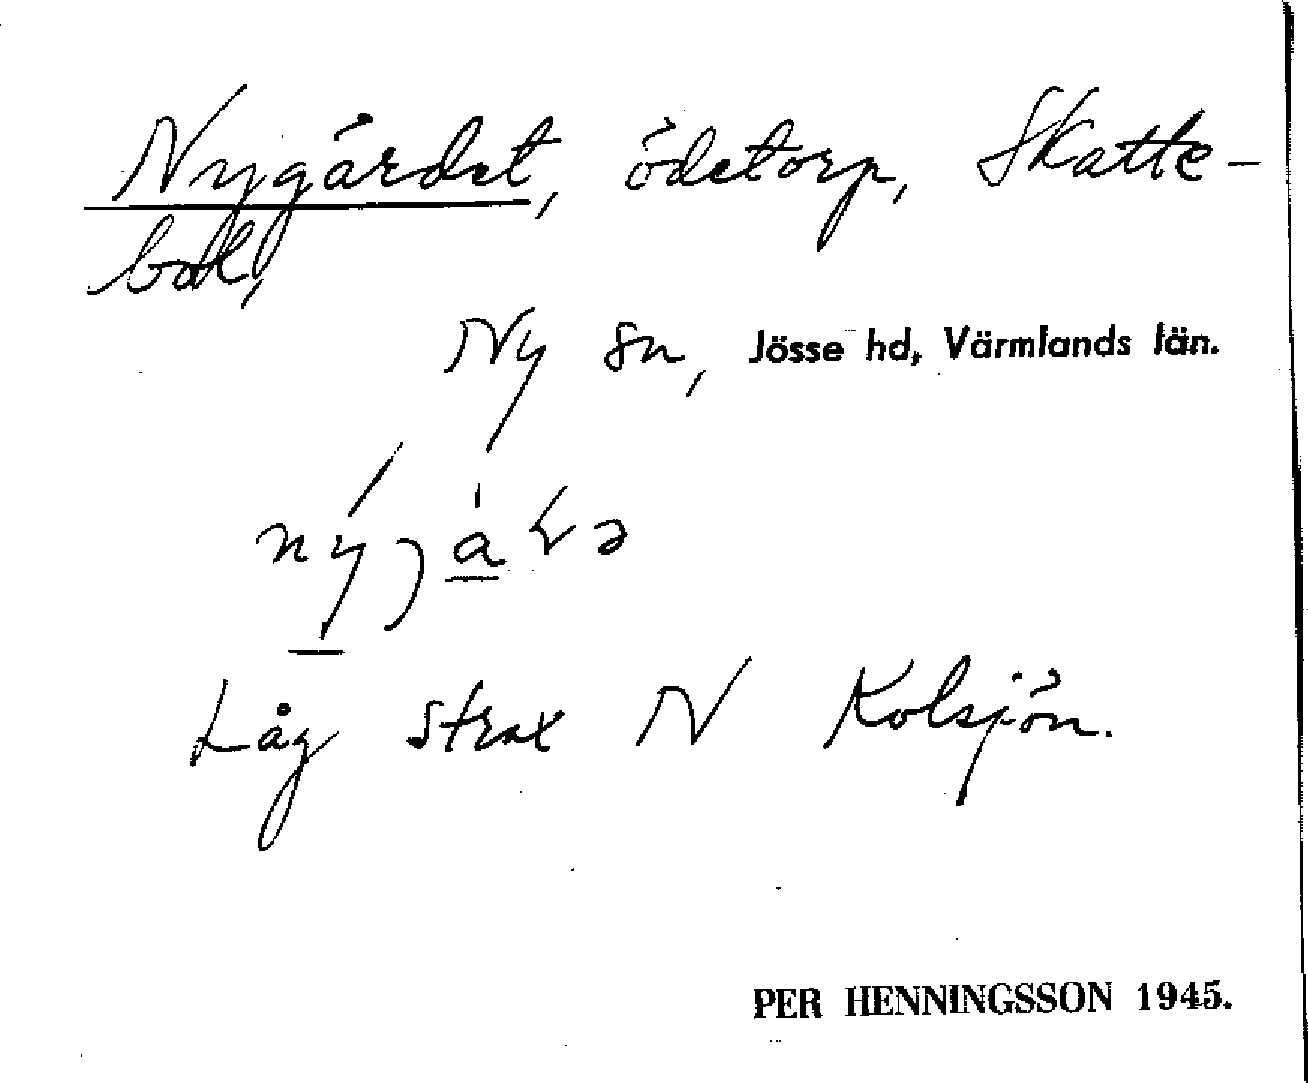 Nygårdet, ödetorp, Skatte-
bol,
Ny sn, Jösse hd, Värmlands län.
Låg strax N Kolsjön.
PER HENNINGSSON 1945.